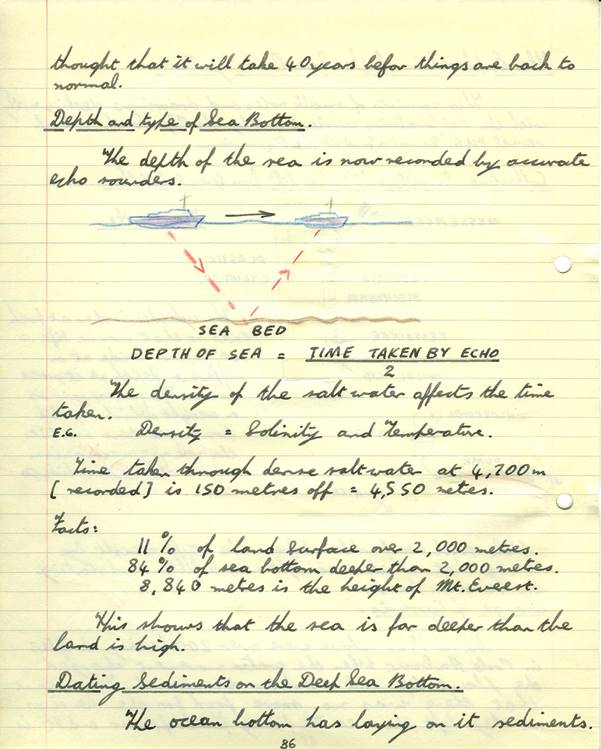 thought that it will take 40 years befor things are back to
normal.
Depth and type of Sea Bottom.
The depth of the sea is now recorded by accurate
echo sounders.
SEA BED
DEPTH OF SEA = TIME TAKEN BY ECHO
2
The density of the salt water affects the time
taken.
E.G. Density = Solinity and Temperature.
Time taken through dense salt water at 4,700m
[recorded] is 150 metres off = 4,550 metres.
Facts:
11% of land Surface over 2,000 metres.
84% of sea bottom deeper than 2,000 metres.
8,840 metres is the height of Mt. Everest.
This shows that the sea is far deeper than the
land is high.
Dating Sediments on the Deep Sea Bottom.
The ocean bottom has laying on it sediments.
86